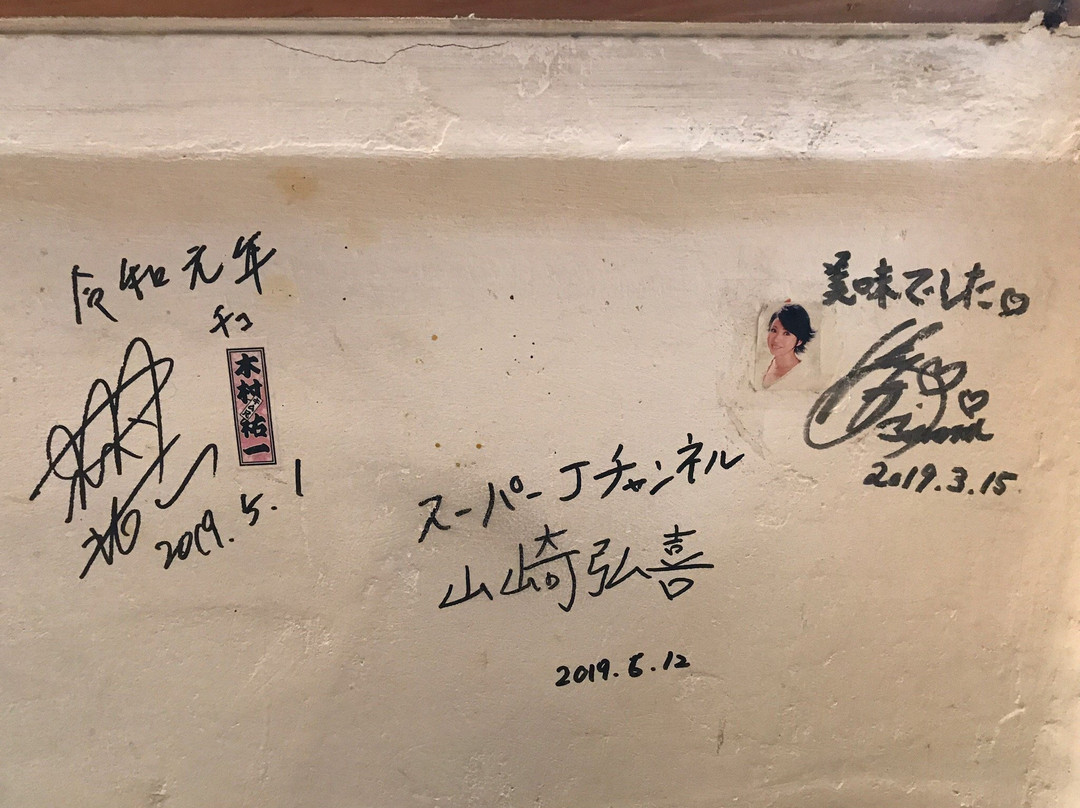 令和元年
木村祐一
2019.5.1
スーパーJチャンネル
山崎弘喜
2019.5.12
美味でした♡
2019.3.15